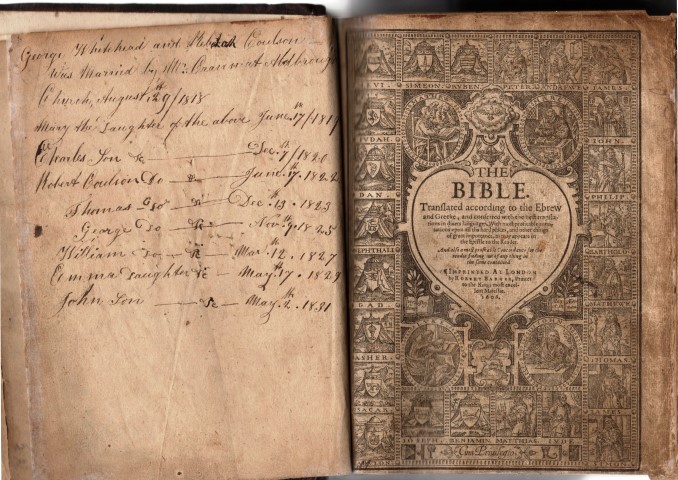 George Whitehead and Rebekah Coulson
Was Married by Mr. at Aldbrough
Church, August 9/1818
Mary the Daughter of the above June 17/1819
Charles Son Do Dec. 7/1820
Robert Coulson Do June 17. 1822
Thomas Do Dec 13. 1823
George Do Nov. 9 1825
William Do Mar. 12. 1827
Emma Daughter May. 17. 1829
John Son May. 2. 1831
LEVI. SIMEON. RVBEN. PETER. ANDREVVE IAMES.
IVDAH.
IOHN.
DAN.
PHILIP.
NEPHTHALI
GAD.
MATHEWE
ASHER.
THOMAS.
ISACAR.
IAMES.
THE
BIBLE.
Translated according to the Ebrew
and Greeke, and conferred with the best transla-
tions in divers languages. With most profitable anno-
tations upon all the hard places, and other things
of great importance, as may appeare in
the Epistle to the Reader.
And also a most profitable Concordance for the
readie finding out of any thing in
the same conteined.
IMPRINTED AT LONDON
by ROBERT BARKER, Printer
to the Kings most excel-
lent Maiestie.
IOSEPH. BENIAMIN. MATTHIAS. IVDE
Cum Priuilegio.